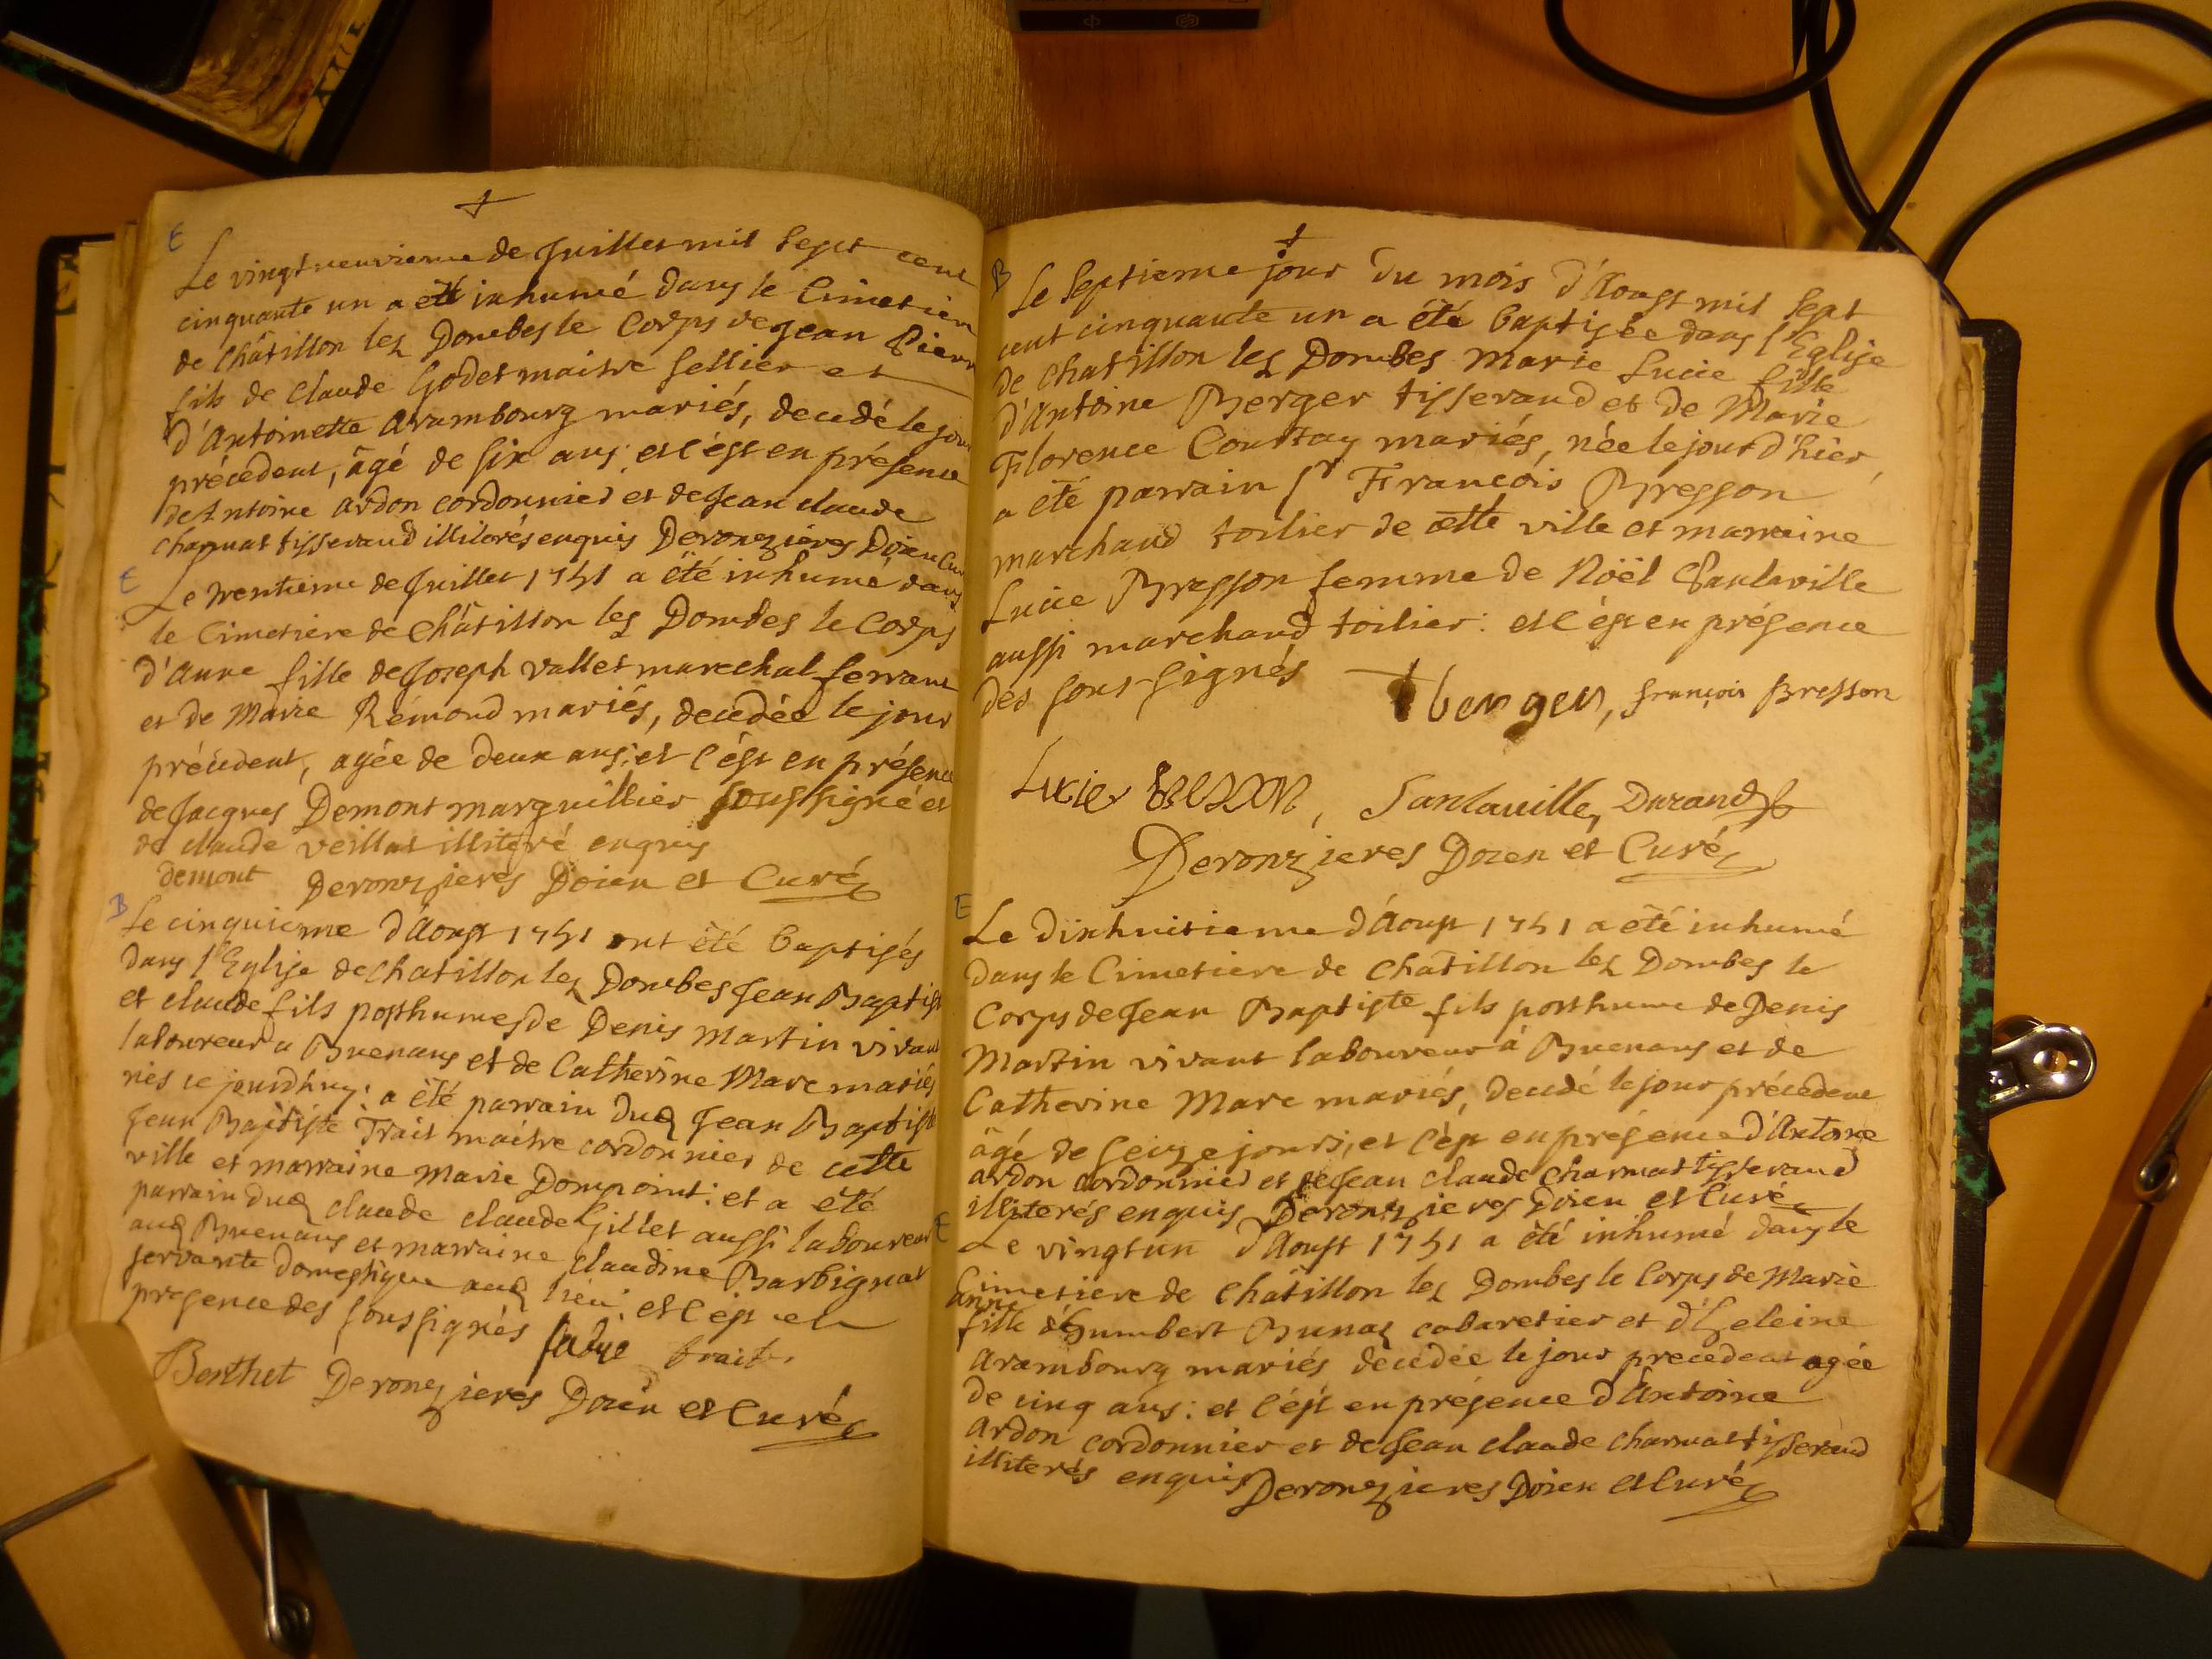 E
Le vingt neuvieme de Juillet mil sept cent
cinquante un a été inhumé dans le Cimetiere
de Châtillon les Dombes le Corps de Jean Pierre
fils de Claude Godet maitre sellier et
d'Antoinette Arambourg mariés, decedé le jour
précédent, âgé de six ans; et c'est en présence
de Antoine Ardon cordonnier et de Jean claude
charnat tisserand illiterés enquis Deronzieres Doien Cur
E
Le trentieme de Juillet 1751 a été inhumé dans
le Cimetiere de Châtillon les Dombes le Corps
d'Anne fille de Joseph vallet marechal ferrant
et de Marie Remond mariés, decedée le jour
précédent, agée de deux ans; et c'est en présence
de Jacques Demont marguillier soussigné et
de claude veillat illiteré enquis
demont Deronzieres Doien et Curé
B
Le cinquieme d'Aoust 1751 ont été baptisés
dans l'Eglise de Chatillon les Dombes Jean Baptiste
et claude fils posthumes de Denis Martin vivant
laboureur a Buenans et de Catherine Marc mariés
nés ce jourdhuy: a été parrain dud Jean Baptiste
Jean Baptiste Trait maitre cordonnier de cette
ville et marraine Marie Dompoint: et a été
parrain dud claude claude Gillet aussi laboureur
aud Buenans et marraine claudine Barbignat
servante domestique aud lieu: et c'est en
presence des soussignés trait.
Berthet Deronzieres Doien et Curé
B
Le septieme jour du mois d'Aoust mil sept
cent cinquante un a été baptisée dans l'Eglise
de Chatillon les Dombes Marie Lucie fille
d'Antoine Berger tisserand et de Marie
Florence Courtay mariés, née le jour d'hier,
a été parrain Sr François Bresson
marchand toilier de cette ville et marraine
Lucie Bresson femme de Noël Santaville
aussi marchand toilier: et c'est en présence
des sous-signés berger, françois Bresson
Santaville, Durand
Deronzieres Doien et Curé
E
Le dixhuitieme d'Aoust 1751 a été inhumé
dans le Cimetiere de Châtillon les Dombes le
Corps de Jean Baptiste fils posthume de Denis
Martin vivant laboureur à Buenans et de
Catherine Marc mariés, decedé le jour précédent
âgé de seize jours; et c'est en présence d'Antoine
ardon cordonnier et de Jean claude charnat tisserand
illiterés enquis Deronzieres Doien et Curé
E
Le vingtun d'Aoust 1751 a été inhumé dans le
Cimetiere de Châtillon les Dombes le Corps de Marie
anne
fille d'Humbert Bunaz cabaretier et d'heleine
Arambourg mariés decedée le jour precedent agée
de cinq ans: et c'est en présence d'Antoine
Ardon cordonnier et de Jean claude charnat tisserand
illiterés enquis Deronzieres Doien et Curé